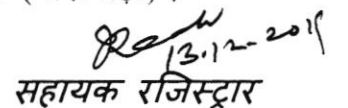 13.12-2019
सहायक रजिस्ट्रार